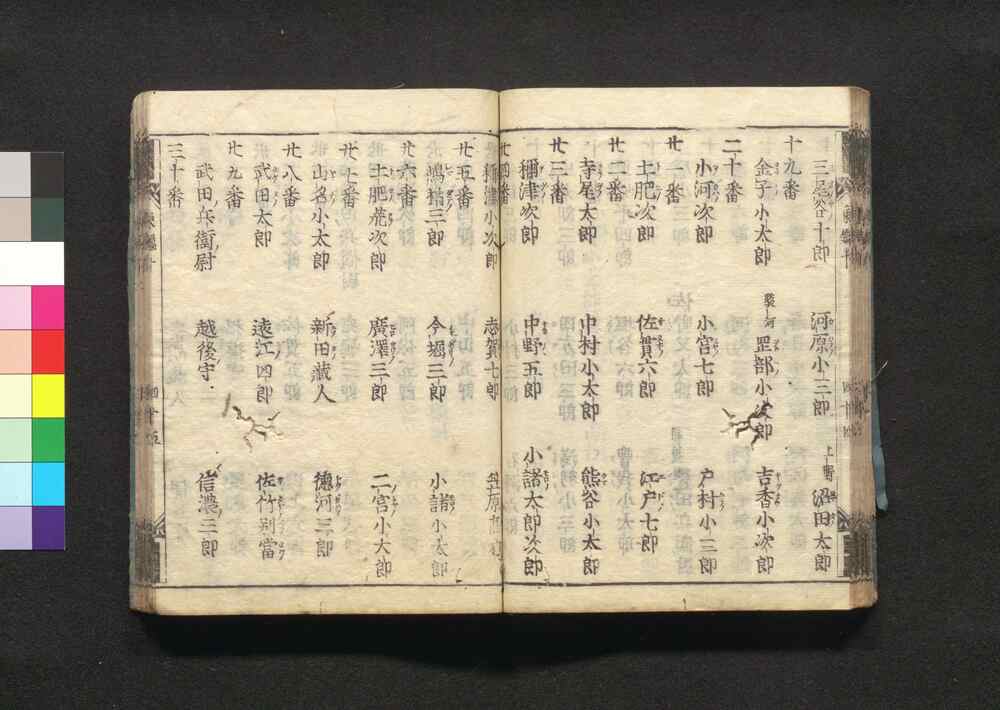 三尾谷十郎　河原小三郎　上野沼田太郎
十九番
金子小太郎　駿河罡部小次郎　吉香小次郎
二十番
小河次郎　小宮七郎　戸村小三郎
廿一番
土肥次郎　佐貫六郎　江戸七郎
廿二番
寺尾太郎　中村小太郎　熊谷小太郎
廿三番
祢津次郎　中野五郎　小諸太郎次郎
廿四番
祢津小次郎　志賀七郎　笠原
廿五番
嶋楯三郎　今堀三郎　小諸小太郎
廿六番
土肥荒次郎　廣澤三郎　二宮小太郎
廿七番
山名小太郎　新田蔵人　德河三郎
廿八番
武田太郎　遠江四郎　佐竹別當
廿九番
武田兵衛尉　越後守　信濃三郎
三十番